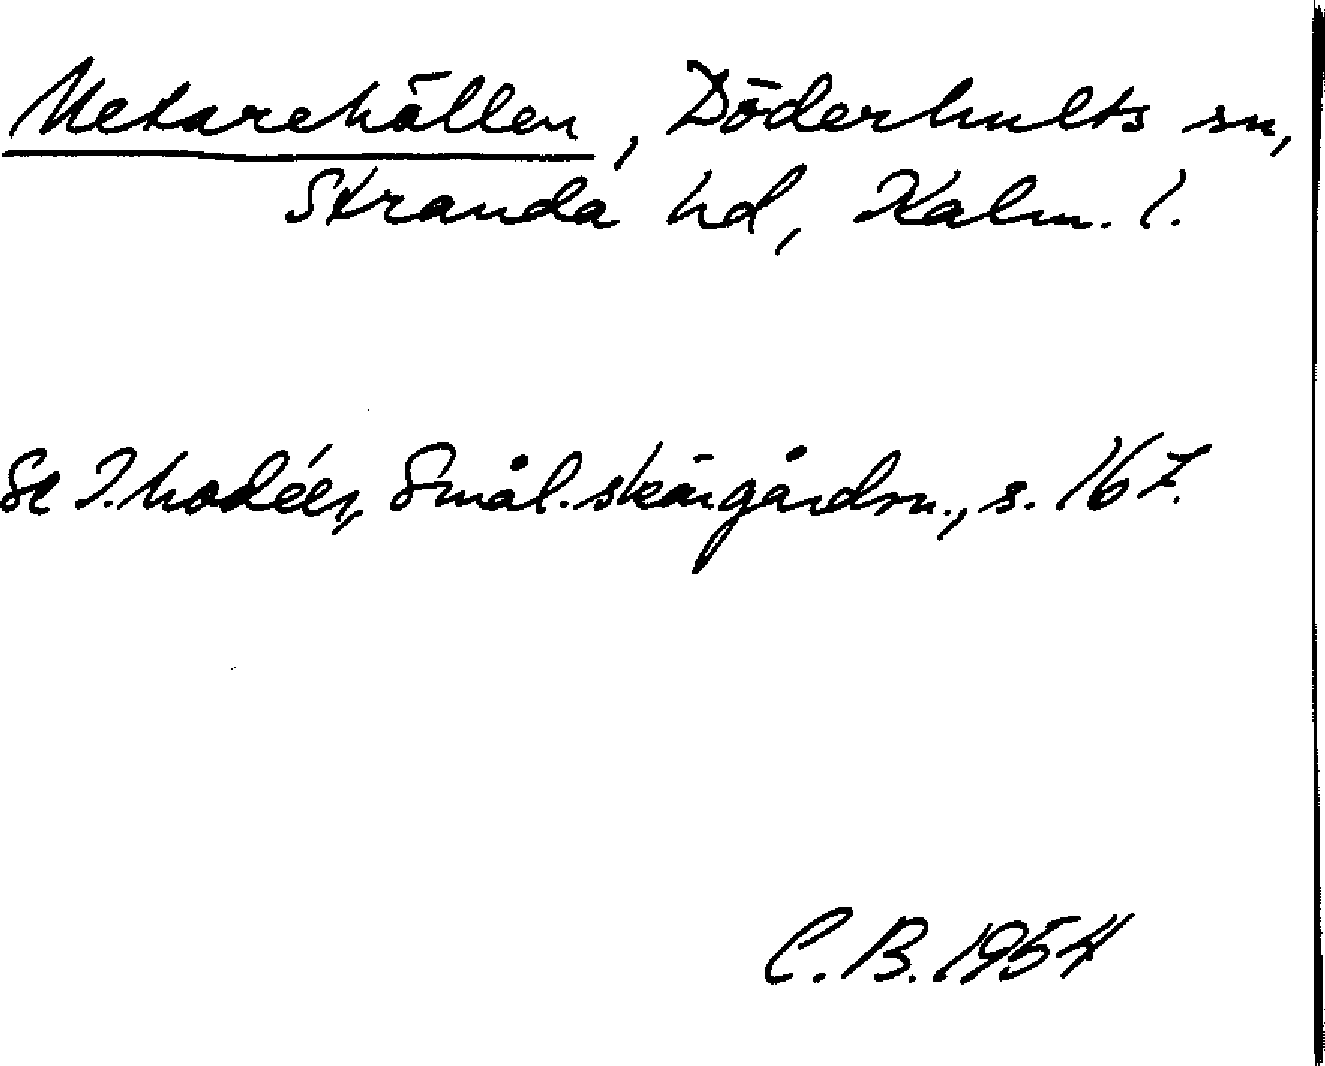 Metarehällen, Döderhults sn,
Stranda hd, Kalm. l.
Se I. Modéer, Smål. skärgårdsn., s. 167.
C. B. 1954